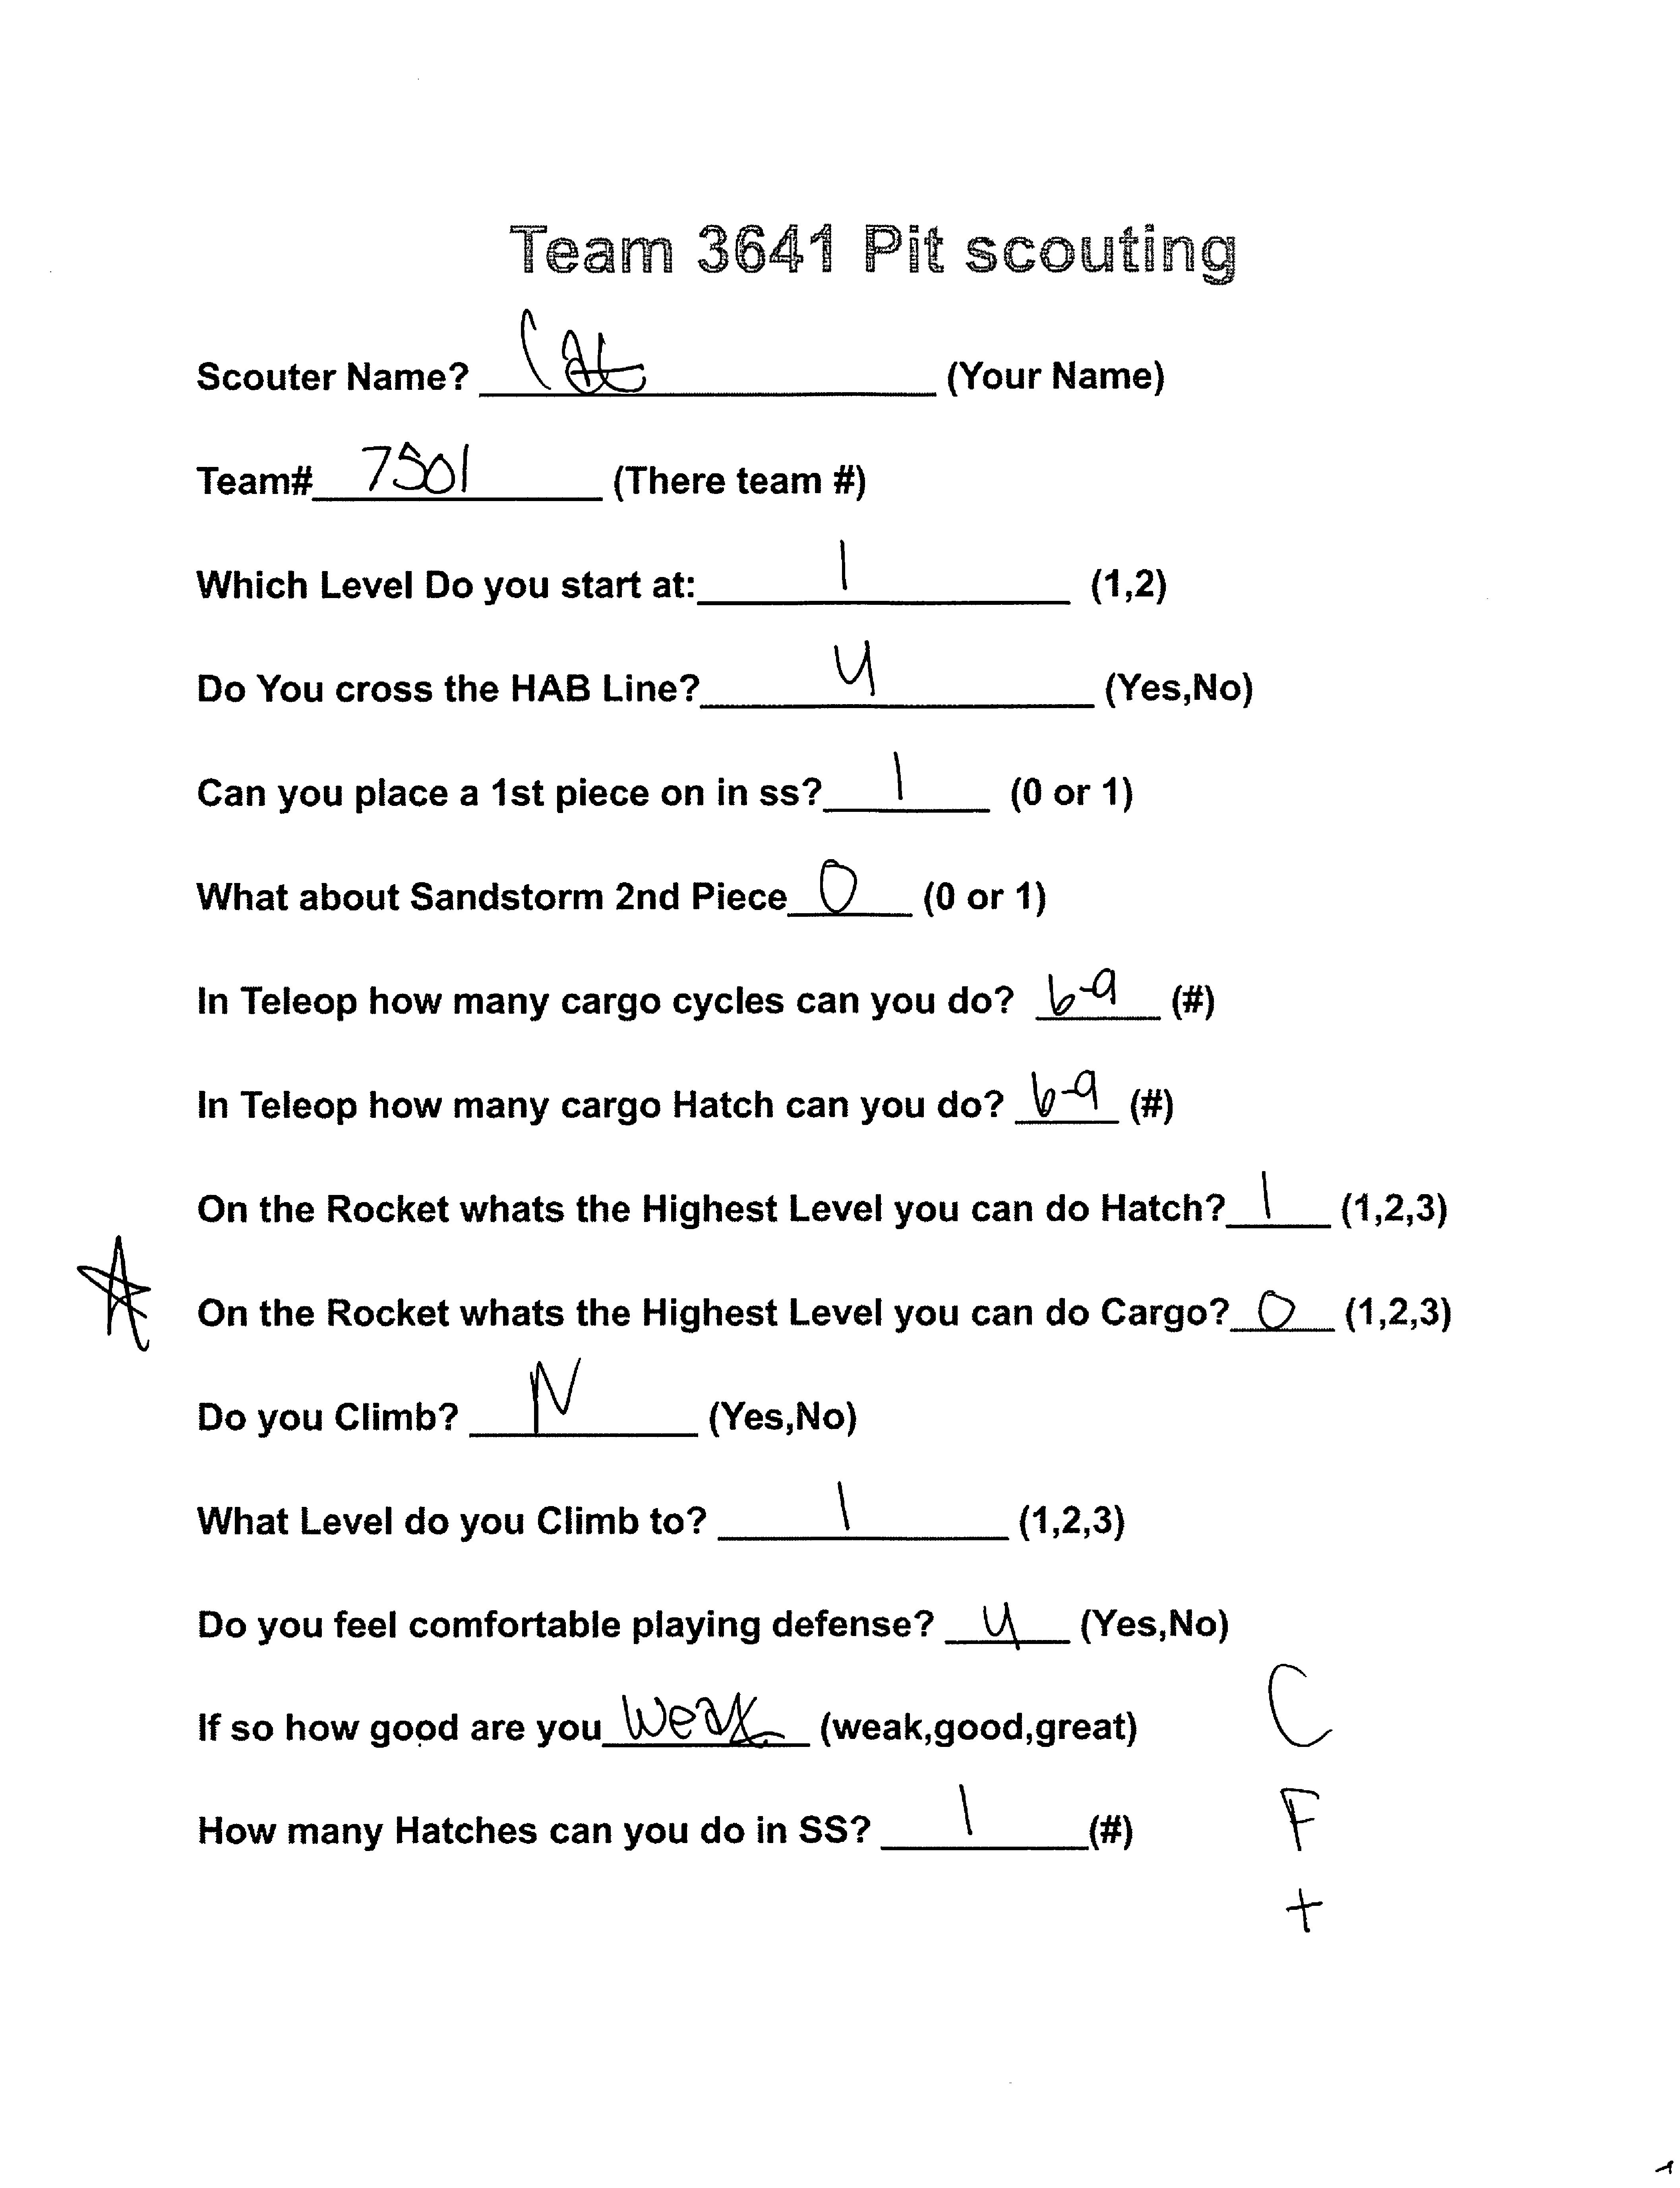 Team 3641 Pit scouting
Scouter Name? Cat (Your Name)
Team# 7501 (There team #)
Which Level Do you start at: 1 (1,2)
Do You cross the HAB Line? y (Yes,No)
Can you place a 1st piece on in ss? 1 (0 or 1)
What about Sandstorm 2nd Piece 0 (0 or 1)
In Teleop how many cargo cycles can you do? 6-9 (#)
In Teleop how many cargo Hatch can you do? 6-9 (#)
On the Rocket whats the Highest Level you can do Hatch? 1 (1,2,3)
On the Rocket whats the Highest Level you can do Cargo? 0 (1,2,3)
Do you Climb? N (Yes,No)
What Level do you Climb to? 1 (1,2,3)
Do you feel comfortable playing defense? y (Yes,No)
If so how good are you weak (weak,good,great)
C
How many Hatches can you do in SS? 1 (#)
F
+